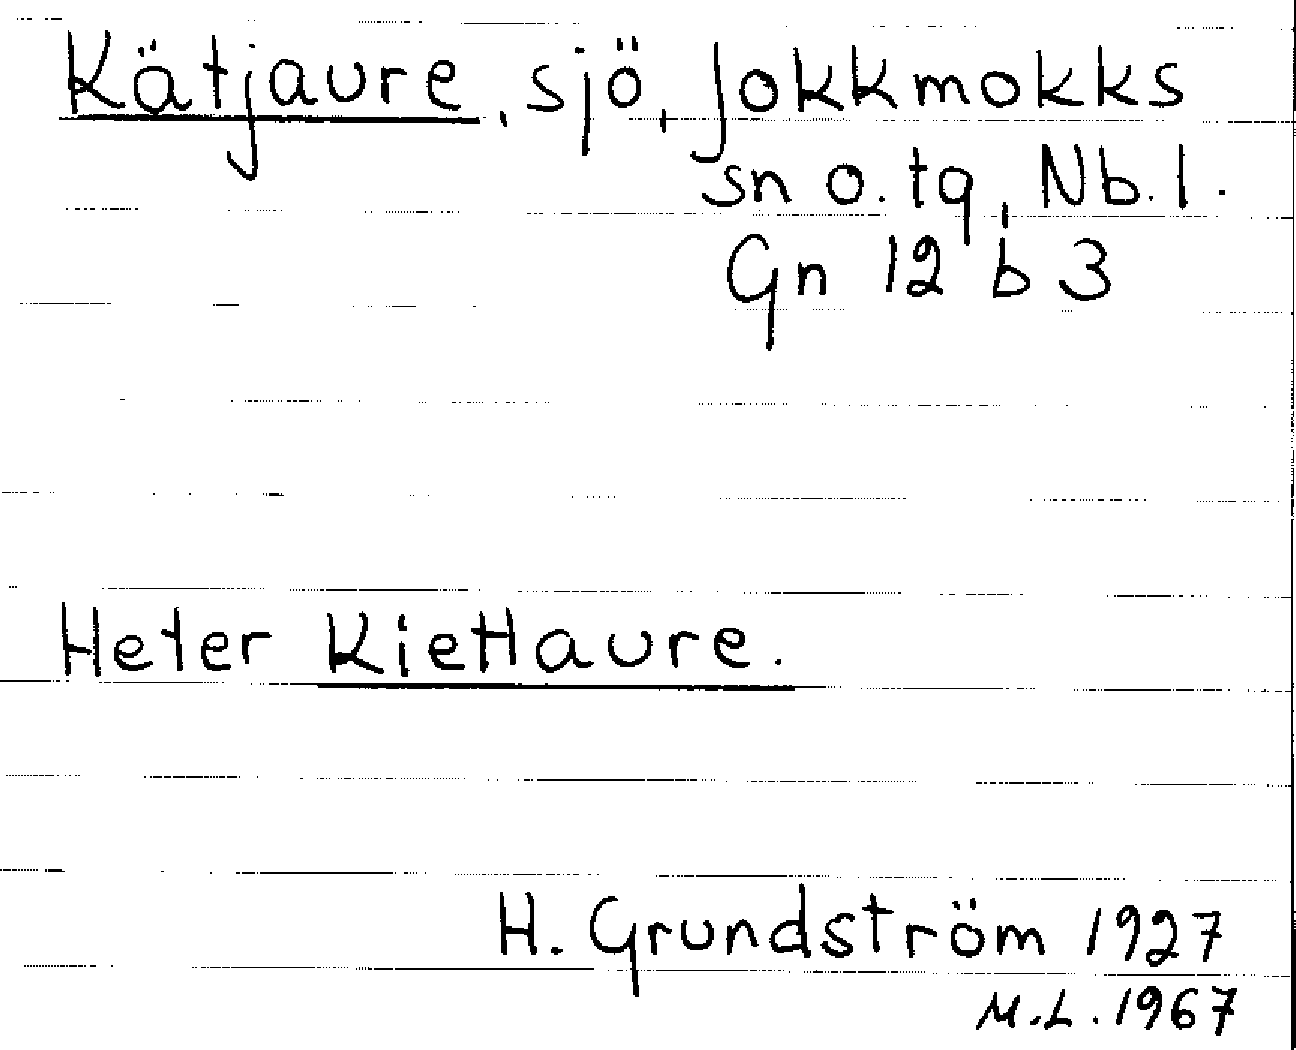 Kätjaure, sjö, Jokkmokks
sn o. tg, Nb. l.
Gn 12 b 3
Heter Kiettaure.
H. Grundström 1927
M.L. 1967